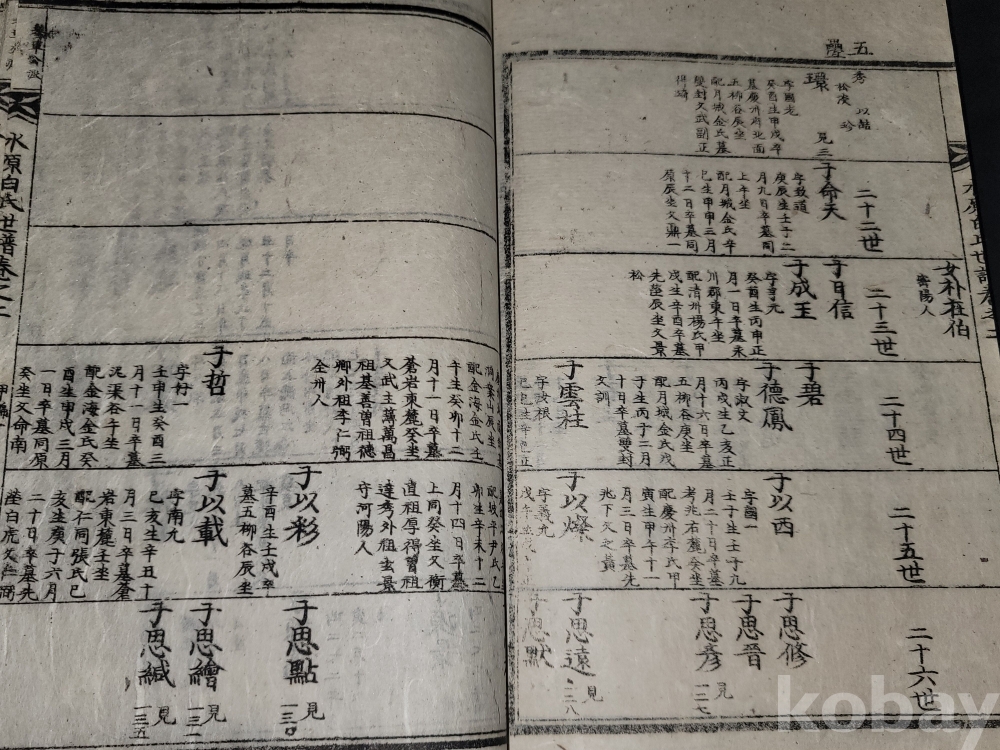 五疊
秀
以喆
松溪 珍
環
見三
字國光
癸酉生甲戌卒
墓慶州府北面
五柳谷辰坐
配月城金氏墓
雙封文武副正
得琦
二十二世
子命天
字致道
庚辰生壬子二
月九日卒墓同
上午坐
配月城金氏辛
巳生甲申三月
十二日卒墓同
原辰坐父鼎一
女朴枉伯
密陽人
二十三世
子日信
子成王
字亨九
癸酉生丙申正
月一日卒墓永
川郡東午坐
配清州楊氏甲
戌生辛酉卒墓
先塋辰坐父景
松
二十四世
子碧
子德鳳
字淑文
丙戌生乙亥正
月十六日卒墓
五柳谷庚坐
配月城金氏戊
子生丙子二月
十日卒墓雙封
父訓
子雲柱
字汝根
二十五世
子以西
字國一
壬子生壬子九
月二十日卒墓
考兆右麓癸坐
配慶州李氏甲
寅生甲午十一
月三日卒墓先
兆下父之黃
子以燦
字義九
二十六世
子思修
子思晋
子思彦
見一二七
子思遠
見一二八
子思默
配金海金氏壬
午生癸卯十二
月十一日卒墓
蒼岩東麓癸坐
父武主薄萬昌
祖基善曾祖德
卿外祖李仁弼
全州人
子哲
字衍一
壬申生癸酉三
月十一日卒墓
泥渠谷午坐
配金海金氏癸
酉生甲戌三月
一日卒墓同原
癸坐父命南
配坡平尹氏乙
卯生辛未十二
月十四日卒墓
上同癸坐父衡
直祖厚得曾祖
達秀外祖玄景
守河陽人
子以彩
辛酉生壬戌卒
墓五柳谷辰坐
子以載
字南九
己亥生辛丑十
月三日卒墓蒼
岩東麓壬坐
配仁同張氏己
亥生庚子六月
二十日卒墓先
塋白虎父仁弼
子思點
見一三〇
子思繪
見一三一
子思緘
見一三五
水原白氏世譜卷之二